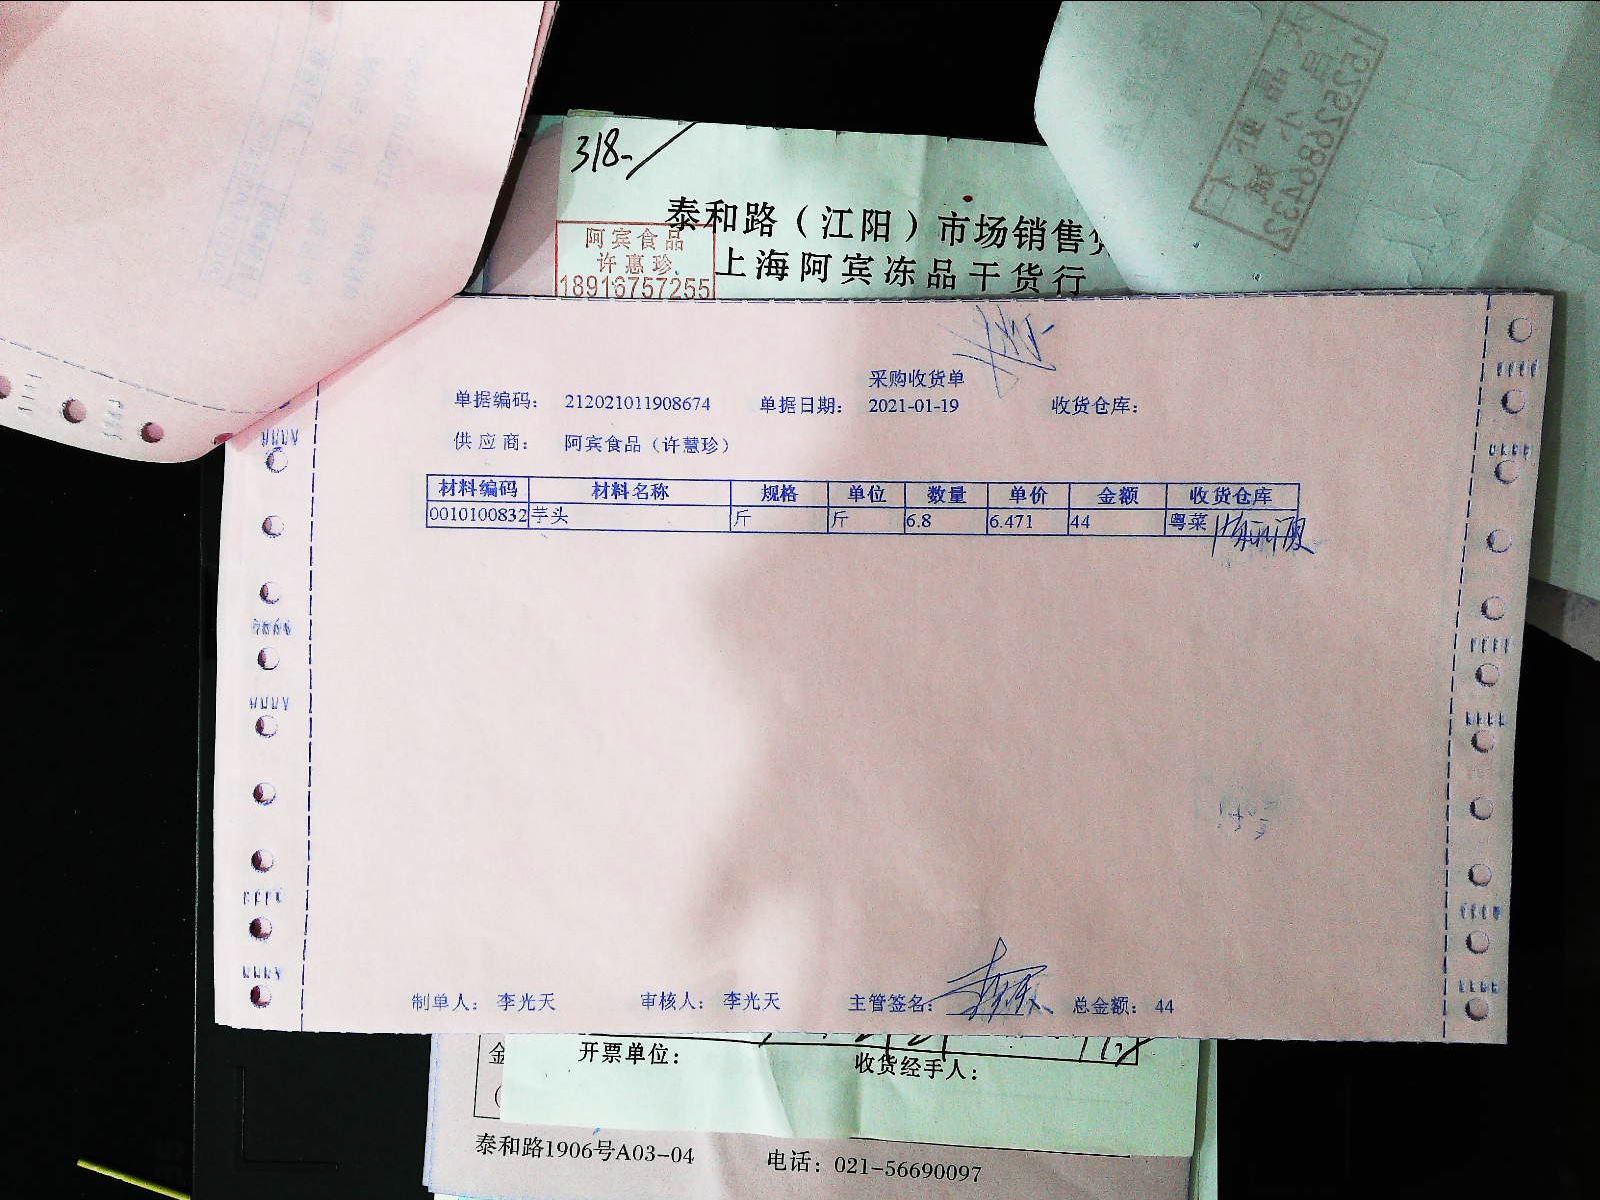 318-
泰和路（江阳）市场销售
阿宾食品
许惠珍
18916757255
上海阿宾冻品干货行
15252686432
采购收货单
单据编码： 212021011908674 单据日期： 2021-01-19 收货仓库：
供应商： 阿宾食品（许慧珍）
材料编码 材料名称 规格 单位 数量 单价 金额 收货仓库
0010100832 芋头 斤 斤 6.8 6.471 44 粤菜
制单人： 李光天 审核人： 李光天 主管签名： 总金额： 44
金
开票单位： 收货经手人：
泰和路1906号A03-04 电话：021-56690097